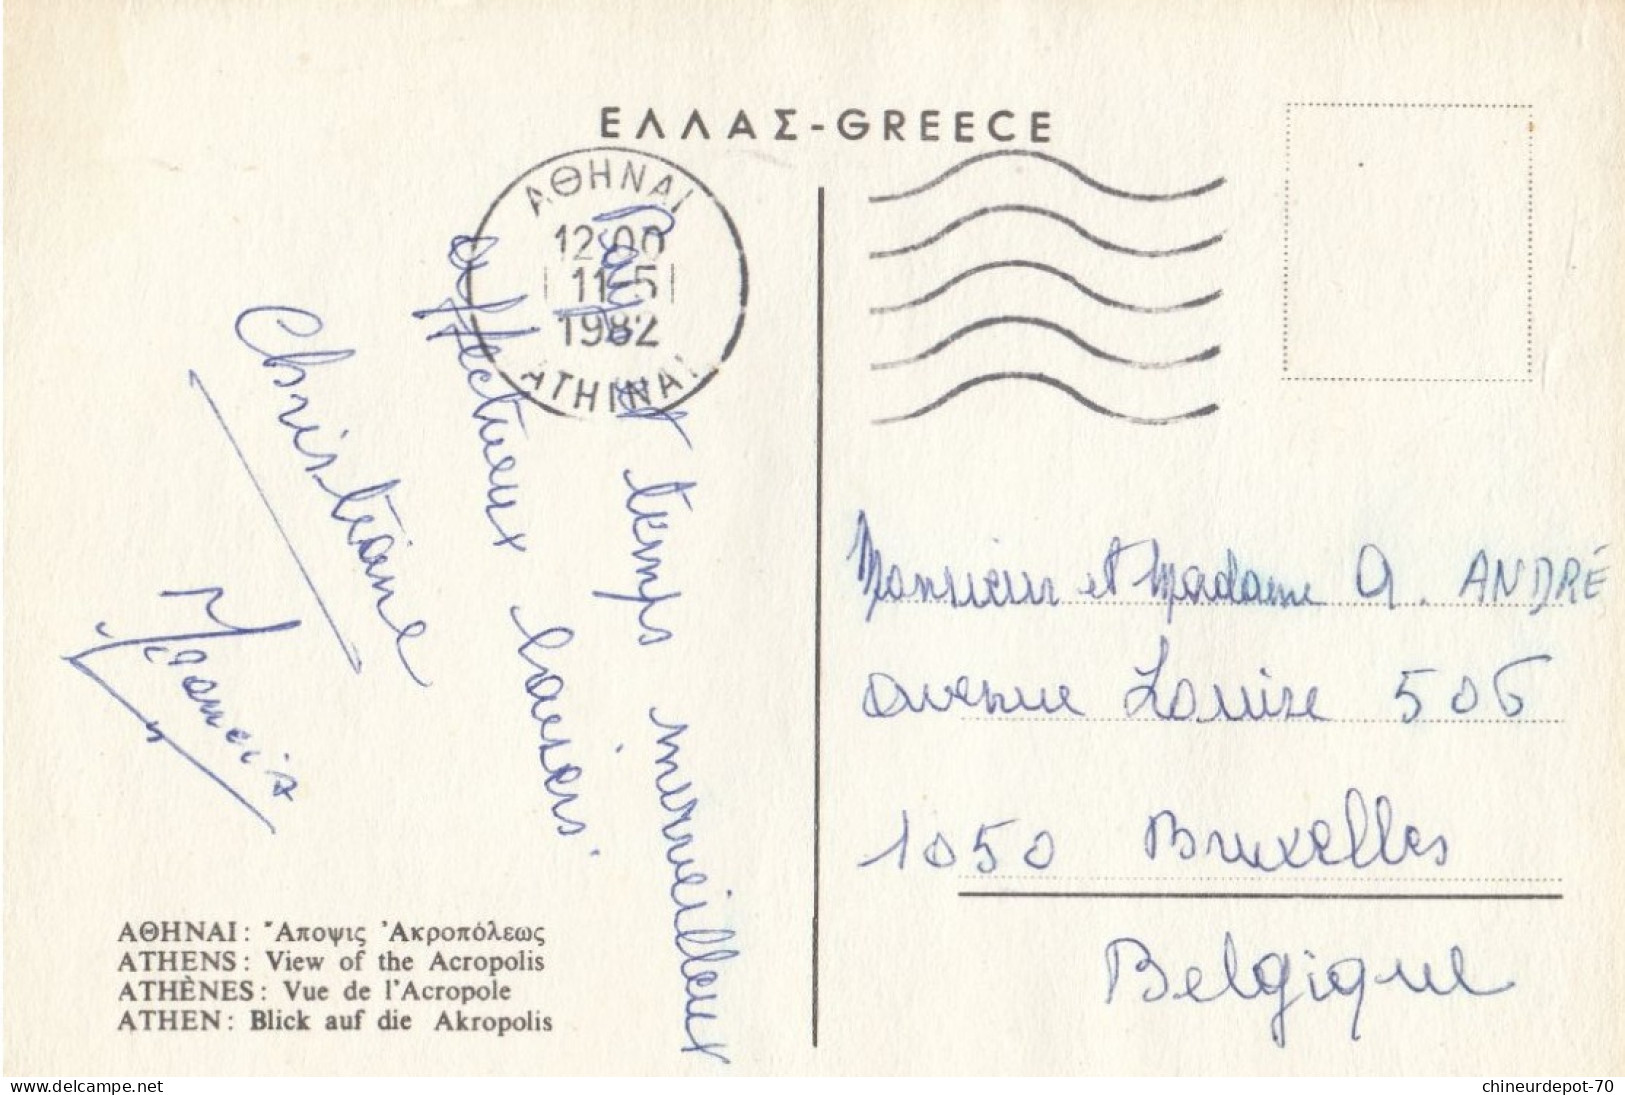 ΕΛΛΑΣ-GREECE
ΑΘΗΝΑΙ
12 00
11-5
1982
ATHINAI
et temps merveilleux
affectueux baisers.
Christiane
Francis
Monsieur et Madame A. ANDRÉ
avenue Louise 506
1050 Bruxelles
Belgique
ΑΘΗΝΑΙ: Ἄποψις Ἀκροπόλεως
ATHENS: View of the Acropolis
ATHÈNES: Vue de l'Acropole
ATHEN: Blick auf die Akropolis
delcampe.net
chineurdepot-70